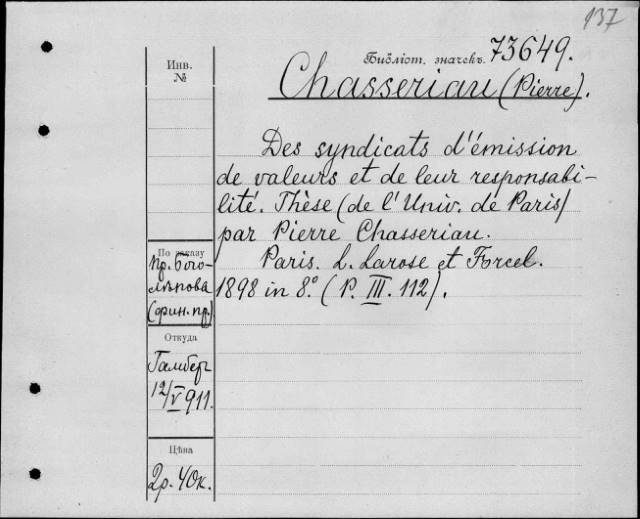 137
Библіот. значекъ 73649.
Инв.
№
Chasseriau (Pierre).
Des syndicats d'émission
de valeurs et de leur responsabi-
lité. Thèse (de l'Univ. de Paris)
par Pierre Chasseriau.
Paris. L. Larose et Forcel.
1898 in 8.° (P. III. 112).
По заказу
пр. Бого-
лѣпова
(фин. пр.)
Откуда
Гамбер
12/V 911.
Цѣна
2р. 40к.